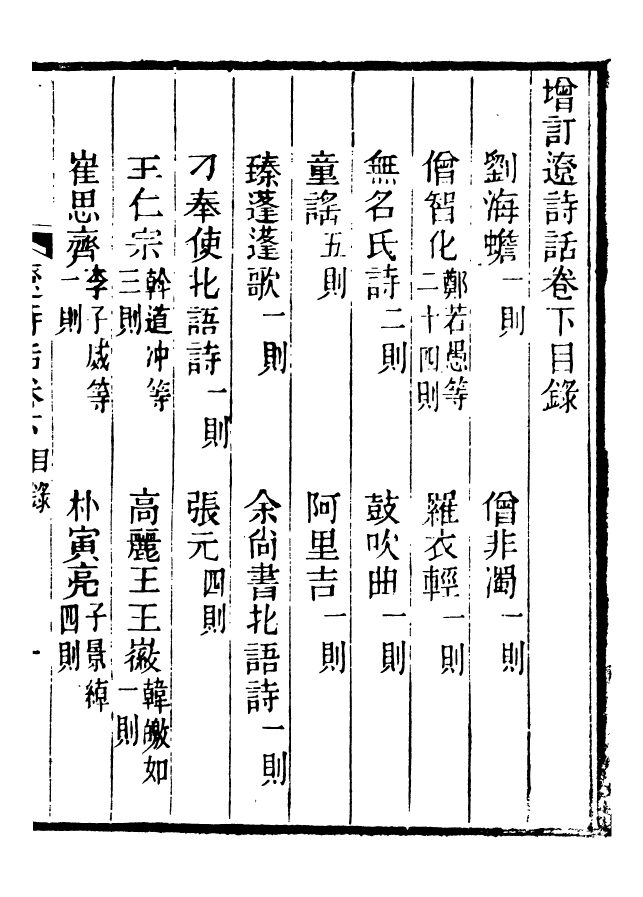 增訂遼詩話卷下目錄
劉海蟾一則　僧非濁一則
僧智化鄭若愚等二十四則　羅衣輕一則
無名氏詩二則　鼓吹曲一則
童謠五則　阿里吉一則
臻蓬蓬歌一則　余尙書北語詩一則
刁奉使北語詩一則　張元四則
王仁宗斡道冲等三則　高麗王王徽韓皦如一則
崔思齊李子威等一則　朴寅亮子景綽四則
遼詩話卷下目錄　一